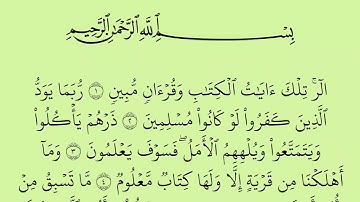 بِسْمِ ٱللَّهِ ٱلرَّحْمَٰنِ ٱلرَّحِيمِ
الٓرۚ تِلْكَ ءَايَٰتُ ٱلْكِتَٰبِ وَقُرْءَانٍ مُّبِينٍ ١ رُّبَمَا يَوَدُّ
ٱلَّذِينَ كَفَرُوا۟ لَوْ كَانُوا۟ مُسْلِمِينَ ٢ ذَرْهُمْ يَأْكُلُوا۟
وَيَتَمَتَّعُوا۟ وَيُلْهِهِمُ ٱلْأَمَلُۖ فَسَوْفَ يَعْلَمُونَ ٣ وَمَآ
أَهْلَكْنَا مِن قَرْيَةٍ إِلَّا وَلَهَا كِتَابٌ مَّعْلُومٌ ٤ مَّا تَسْبِقُ مِنْ